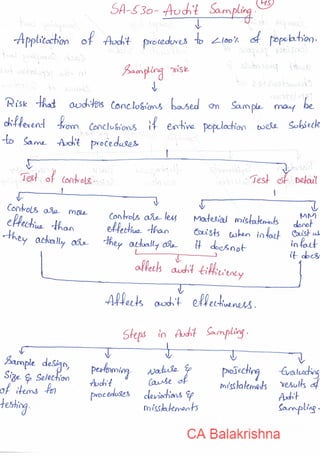 SA-530- Audit Sampling 45
Application of Audit procedures to <100% of population.
Sampling risk
Risk that auditors Conclusions based on Sample may be
different from Conclusions if entire population were Subject
to Same Audit procedures
Test of Controls
Test of Detail
Controls are more
effective than
they actually are
Controls are less
effective than
they actually are
Material mistatements
Exists when infact
it doesnot
MM
donot
Exist
infact
it does
affects audit Efficiency
Affects audit effectiveness.
Steps in Audit Sampling.
Sample design,
Size & Selection
of items for
testing.
performing
Audit
procedures
Nature &
Cause of
deviations &
misstatements
projecting
misstatements
Evaluating
results of
Audit
Sampling.
CA Balakrishna